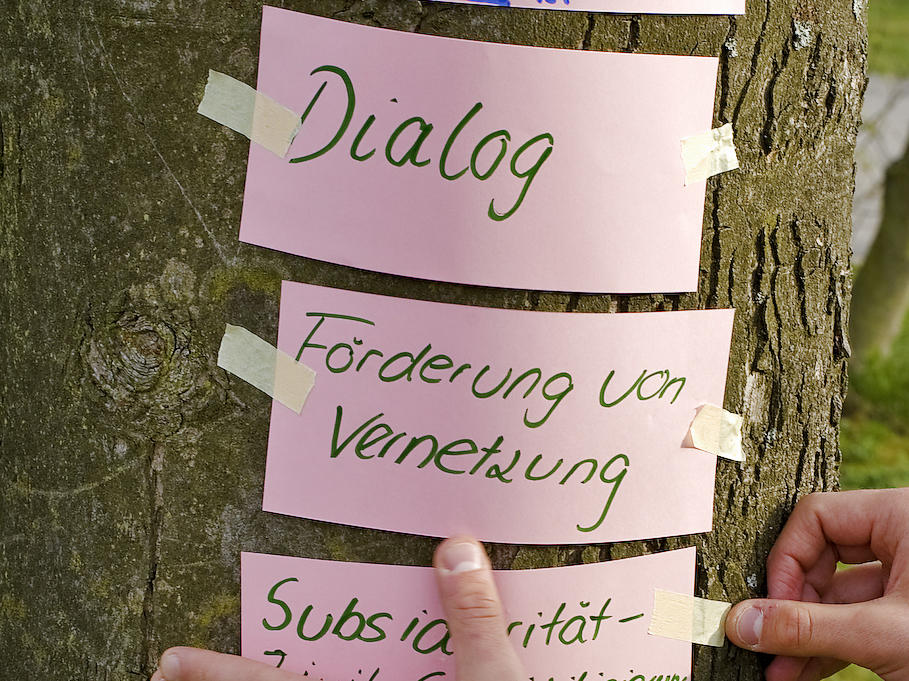 Dialog
Förderung von
Vernetzung
Subsidiarität-